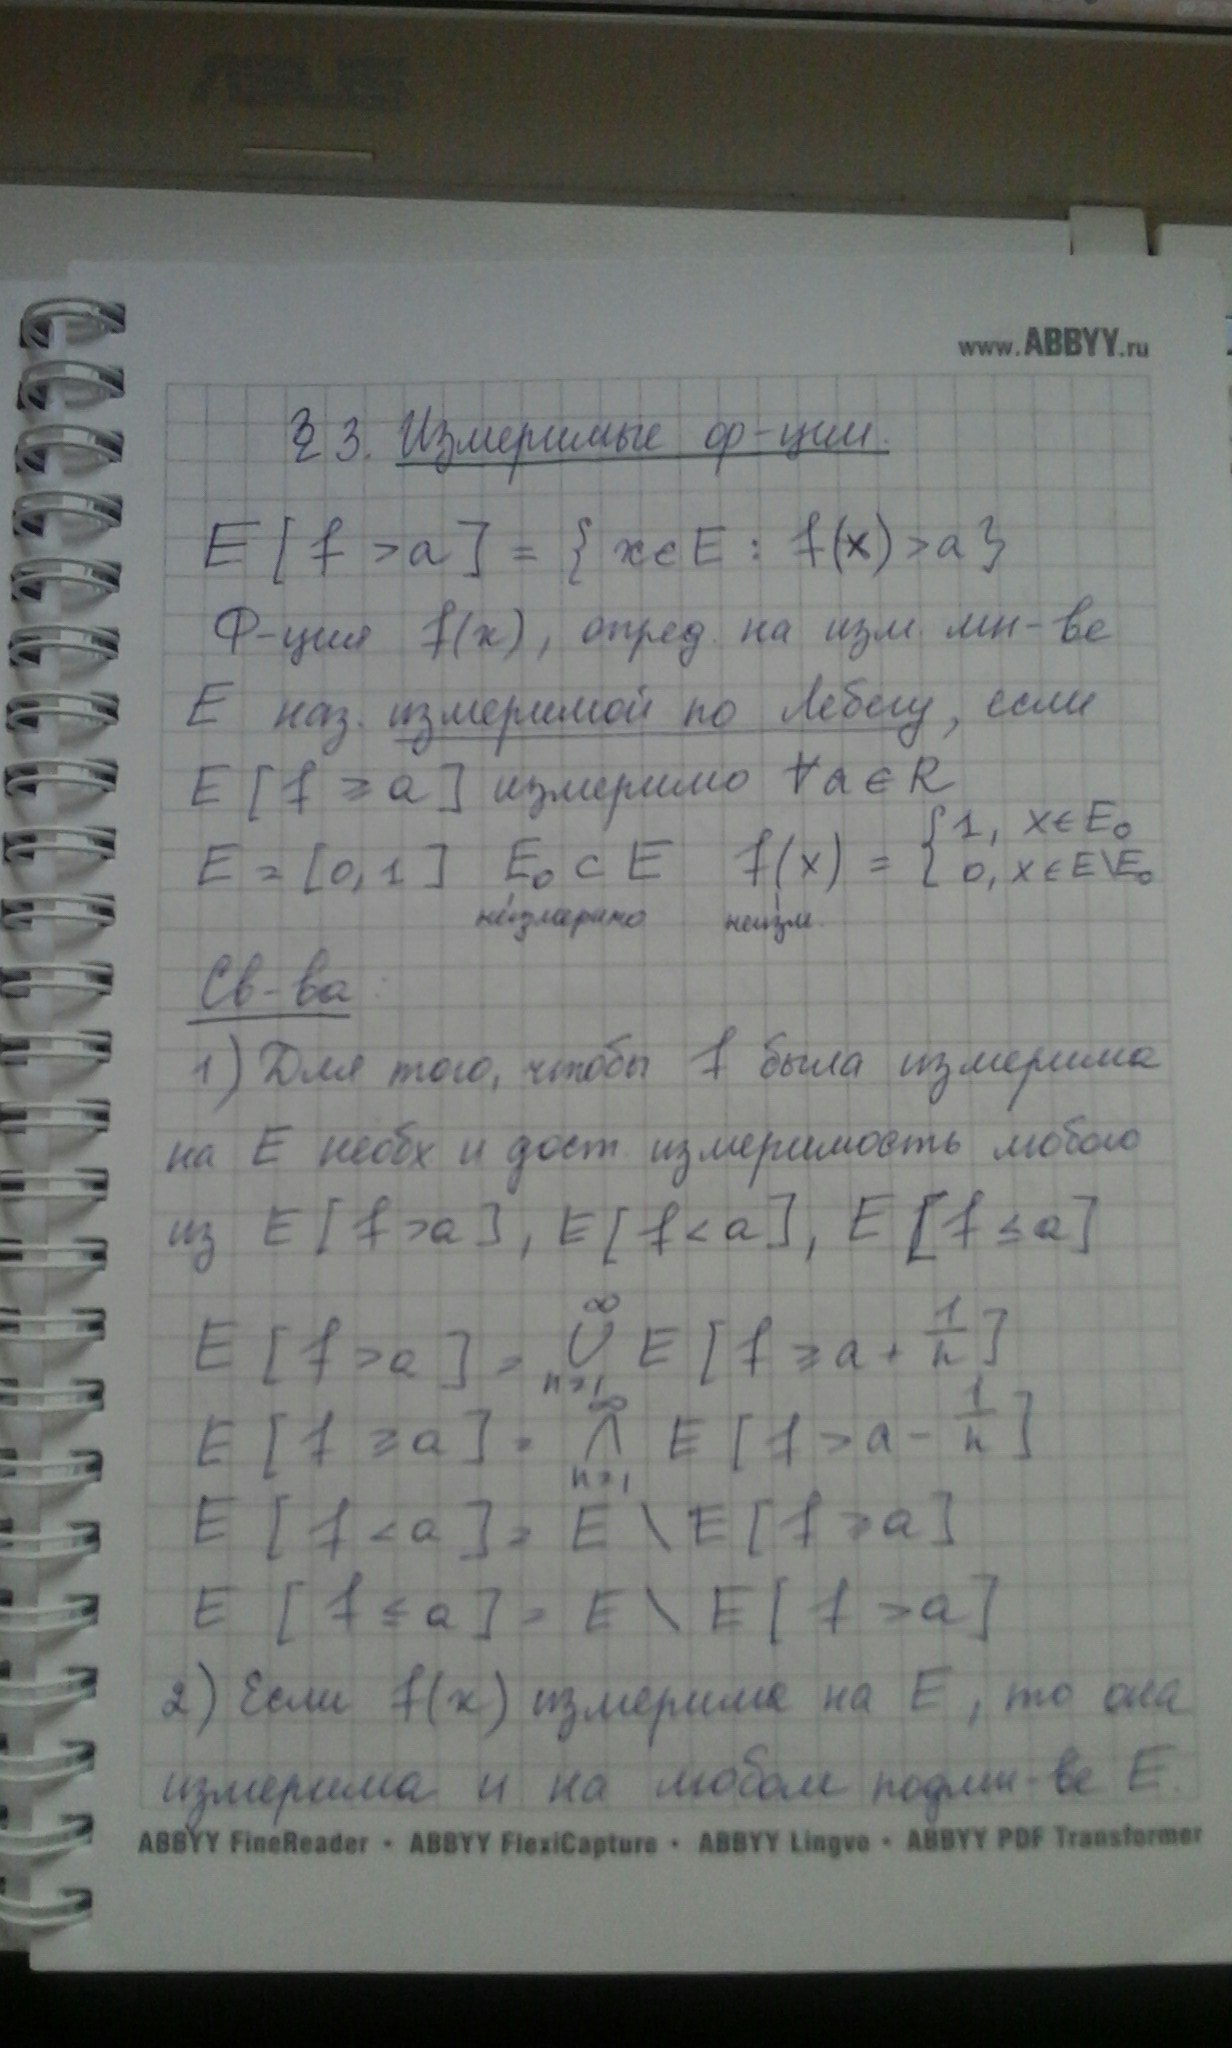 ASUS
www.ABBYY.ru
§ 3. Измеримые ф-ции.
E [f > a] = { x ∈ E : f(x) > a }
Ф-ция f(x), опред. на изм. мн-ве
E наз. измеримой по Лебегу, если
E [f ≥ a] измеримо ∀a ∈ R
E = [0,1] E₀ ⊂ E f(x) = { 1, x ∈ E₀
0, x ∈ E\E₀
неизмеримо неизм.
Св-ва:
1) Для того, чтобы f была измерима
на E необх и дост. измеримость любого
из E [f > a], E [f < a], E [f ≤ a]
E [f > a] = ∞ ∪ n=1 E [f ≥ a + 1/n]
E [f ≥ a] = ∞ ∩ n=1 E [f > a - 1/n]
E [f < a] = E \ E [f ≥ a]
E [f ≤ a] = E \ E [f > a]
2) Если f(x) измерима на E, то она
измерима и на любом подмн-ве E.
ABBYY FineReader • ABBYY FlexiCapture • ABBYY Lingvo • ABBYY PDF Transformer